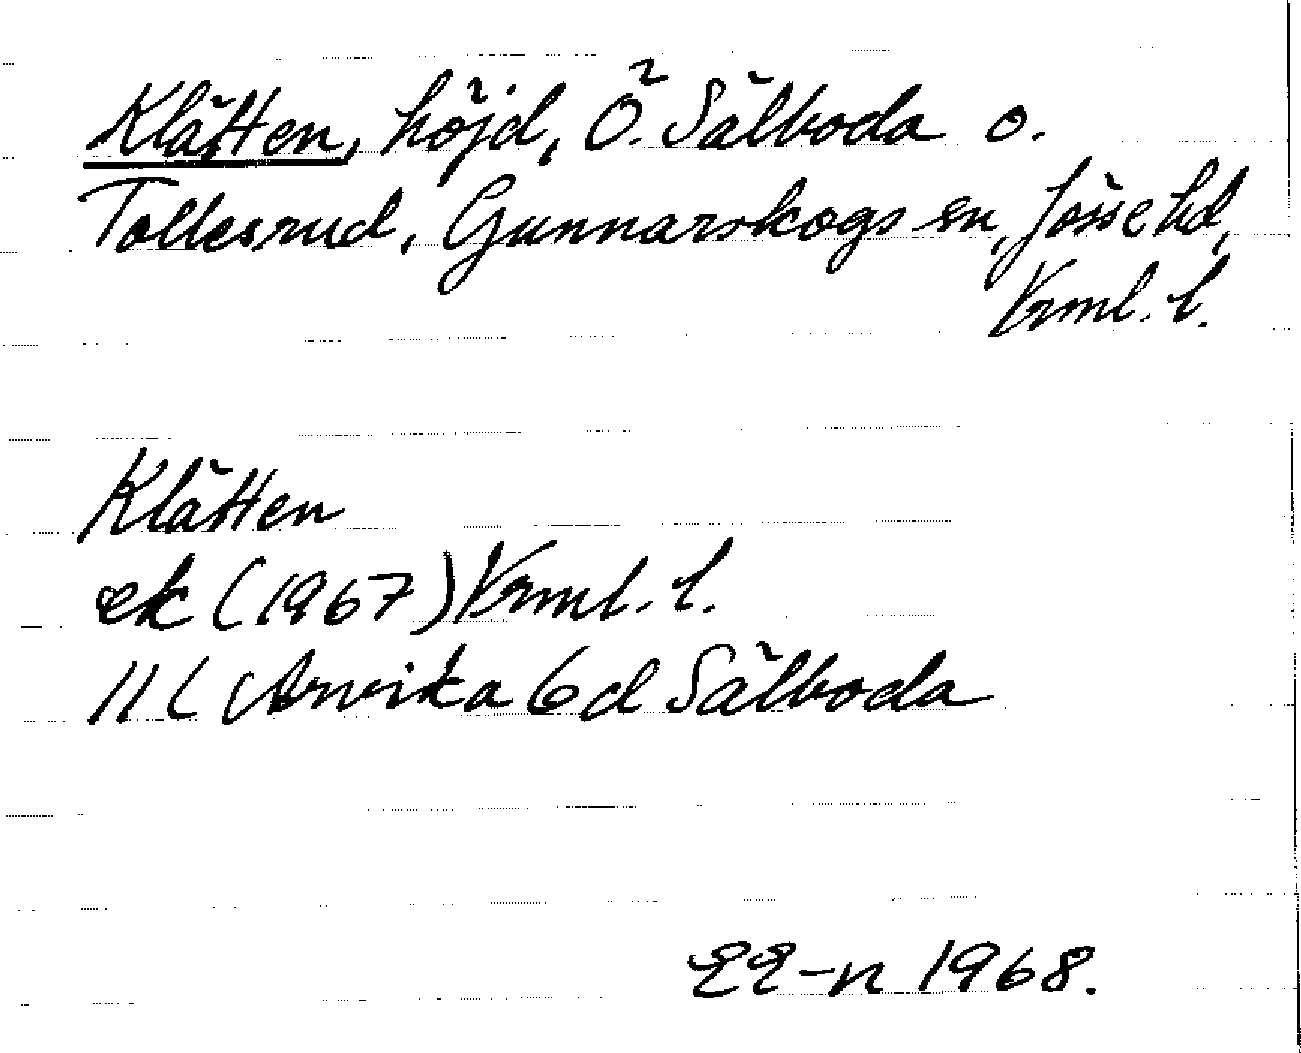 Klätten, höjd, Ö. Sälboda o.
Tollesrud, Gunnarskogs sn, Jösse hd,
Vrml. l.
Klätten
ek (1967) Vrml. l.
11 C Arvika 6 d Sälboda
EE-n 1968.